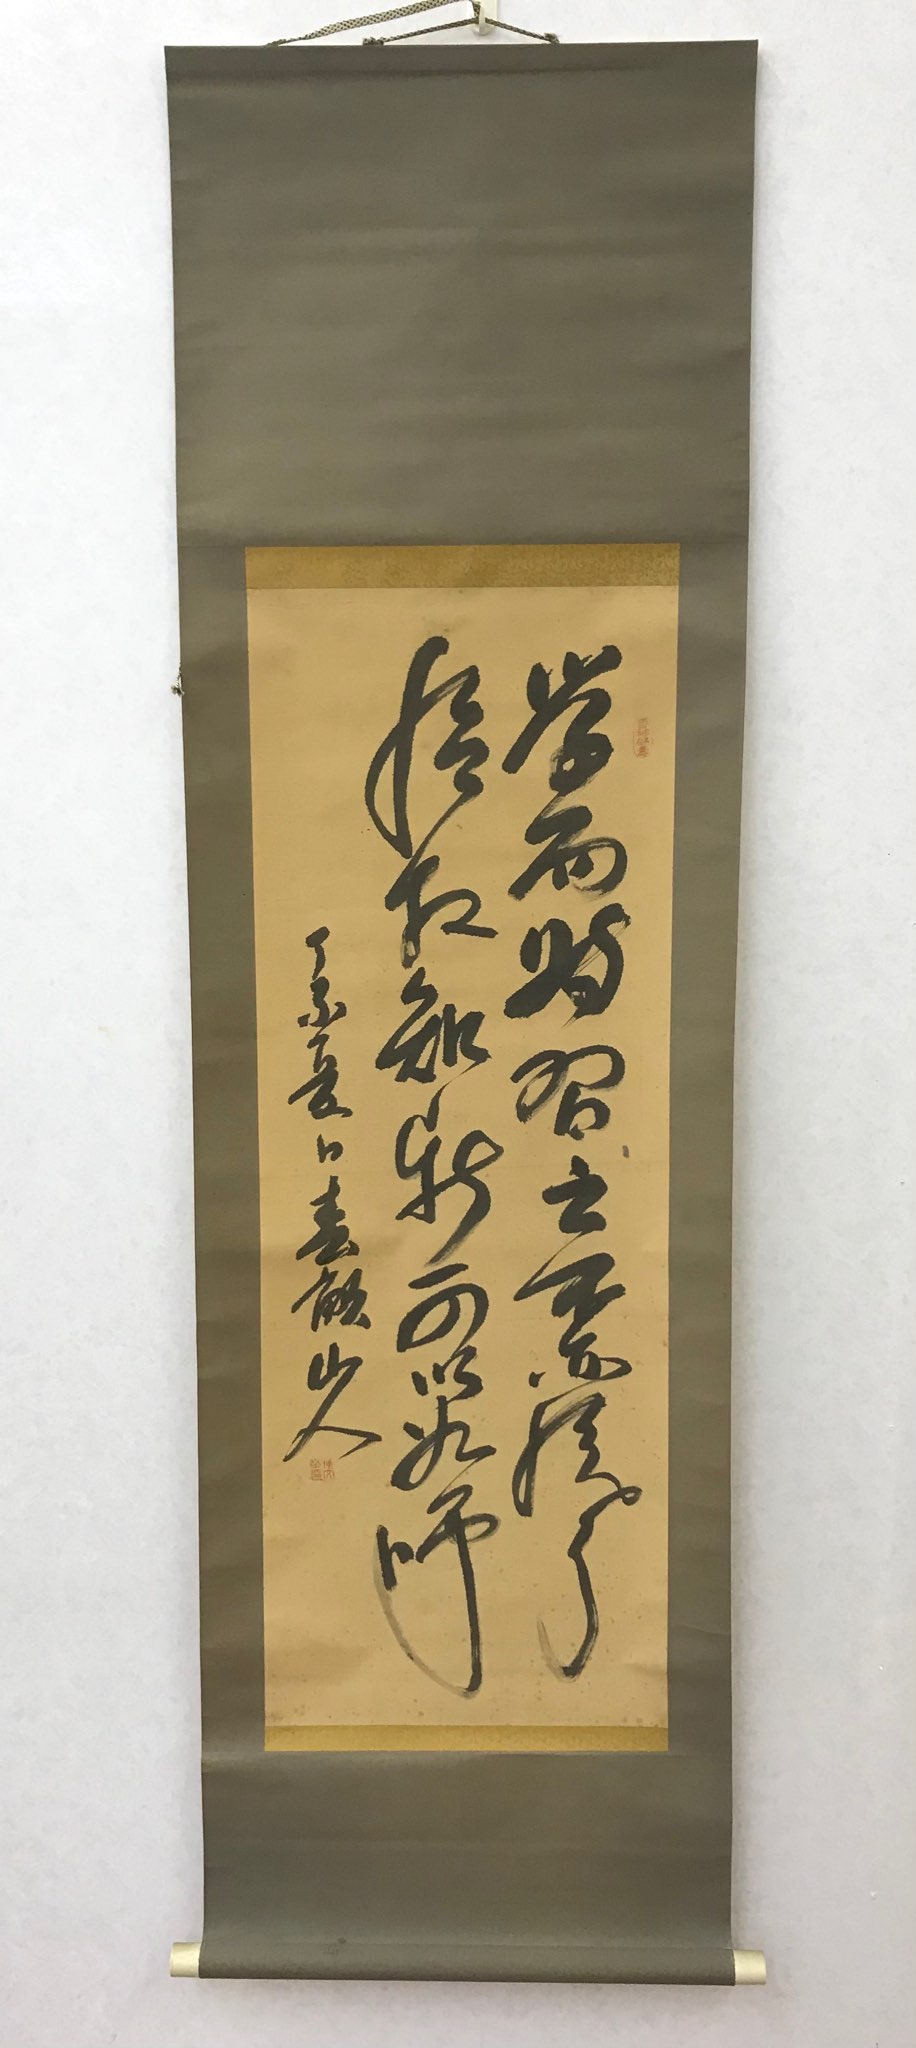 学而時習之不亦悦乎
温故知新可以為師
丁亥夏日春畝山人